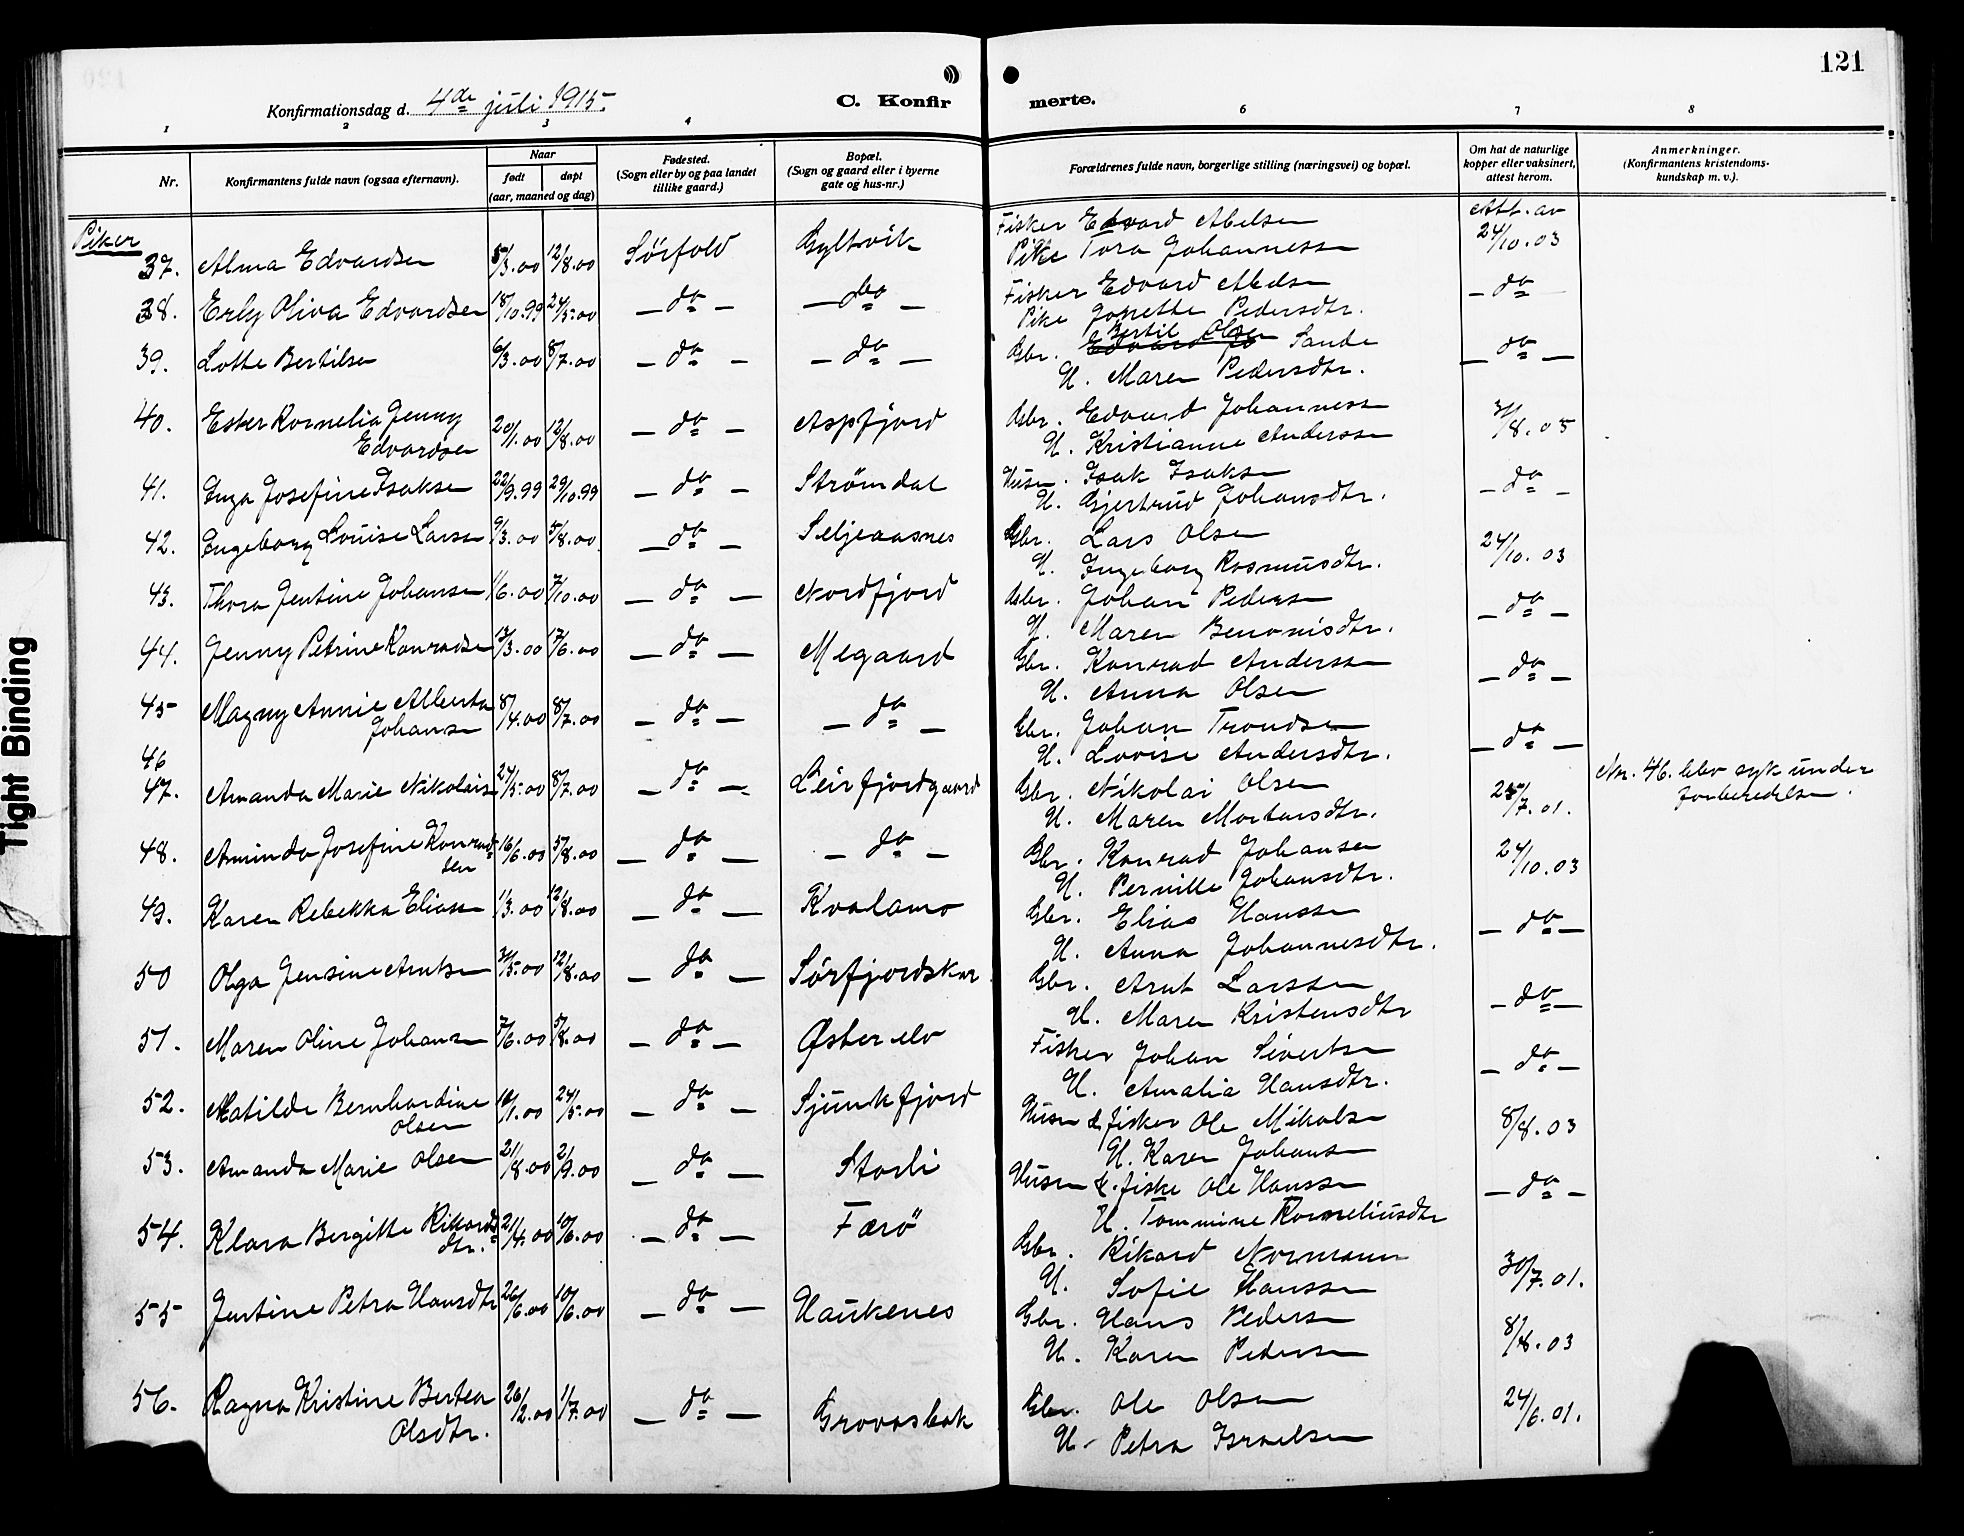 121
Konfirmationsdag d. 4de juli 1915.
C. Konfirmerte.
1 2 3 4 6 7 8
Nr.
Konfirmantens fulde navn (ogsaa efternavn).
Naar
født døpt
(aar, maaned og dag)
Fødested.
(Sogn eller by og paa landet
tillike gaard.)
Bopæl.
(Sogn og gaard eller i byerne
gate og hus-nr.)
Forældrenes fulde navn, borgerlige stilling (næringsvei) og bopæl.
Om hat de naturlige
kopper eller vaksinert,
attest herom.
Anmerkninger.
(Konfirmantens kristendoms-
kundskap m. v.).
Piker
37. Alma Edvardsen 5/3.00 12/8.00 Sørfold Gyltvik Fisker Edvard Abelsen Att. av
Pike Tora Johannessen 24/10.03
38. Erly Oliva Edvardsen 18/10.99 24/5.00 - do - - do - Fisker Edvard Abelsen - do -
Pike Jonette Pedersdtr.
39. Lotte Bertilsen 6/3.00 8/7.00 - do - - do - Gbr. Bertil Olsen Sande - do -
U. Maren Pedersdtr.
40. Ester Kornelia Jenny 20/1.00 12/8.00 - do - Aspfjord Gbr. Edvard Johannessen 31/8.05
Edvardsen U. Kristianne Anderssen
41. Inga Josefine Isaksen 22/9.99 29/10.99 - do - Strømdal Husm. Isak Isaksen - do -
U. Gjertrud Johansdtr.
42. Ingeborg Louise Larssen 9/3.00 5/8.00 - do - Seljeaasnes Gbr. Lars Olsen 24/10.03
U. Ingeborg Rasmusdtr.
43. Thora Jentine Johansen 1/6.00 7/10.00 - do - Nordfjord Gbr. Johan Pedersen - do -
U. Maren Benonisdtr.
44. Jenny Petrine Konradsen 13/3.00 17/6.00 - do - Megaard Gbr. Konrad Anderssen - do -
U. Anna Olsen
45 Magny Annie Alberta 8/4.00 8/7.00 - do - - do - Gbr. Johan Trondsen - do -
Johansen U. Lovise Andersdtr.
46
47. Amanda Marie Nikolaisen 24/5.00 8/7.00 - do - Leirfjordgaard Gbr. Nikolai Olsen 25/7.01. Nr. 46. blev syk under
U. Maren Mortensdtr. forberedelsen.
48. Aminda Josefine Konrad- 16/6.00 5/8.00 - do - - do - Gbr. Konrad Johansen 24/10.03
sen U. Pernille Johansdtr.
49. Karen Rebekka Eliassen 1/3.00 12/8.00 - do - Kvalamo Gbr. Elias Hanssen - do -
U. Anna Johannesdtr.
50 Olga Jensine Arntsen 31/5.00 12/8.00 - do - Sørfjordskar Gbr. Arnt Larssen - do -
U. Maren Kristensdtr
51. Maren Oline Johansen 7/6.00 5/8.00 - do - Østerelv Fisker Johan Sivertsen - do -
U. Amalia Hansdtr.
52. Matilde Bernhardine 16/1.00 24/5.00 - do - Sjunkfjord Husm & fisker Ole Mikalsen 8/8.03
Olsen U. Karen Johansen
53. Amanda Marie Olsen 21/8.00 2/9.00 - do - Storli Husm & fiske Ole Hanssen - do -
U. Tommine Korneliusdtr
54. Klara Bergitte Rikards- 2/4.00 10/6.00 - do - Færø Gbr. Rikard Normann 30/7.01.
dtr. U. Sofie Hanssen
55 Jentine Petra Hansdtr 26/6.00 10/6.00 - do - Haukenes Gbr. Hans Pedersen 8/8.03
U. Karen Pedersen
56. Ragna Kristine Bertea 26/2.00 1/7.00 - do - Grovasbak Gbr. Ole Olsen 24/6.01.
Olsdtr. U. Petra Israelsen
Tight Binding